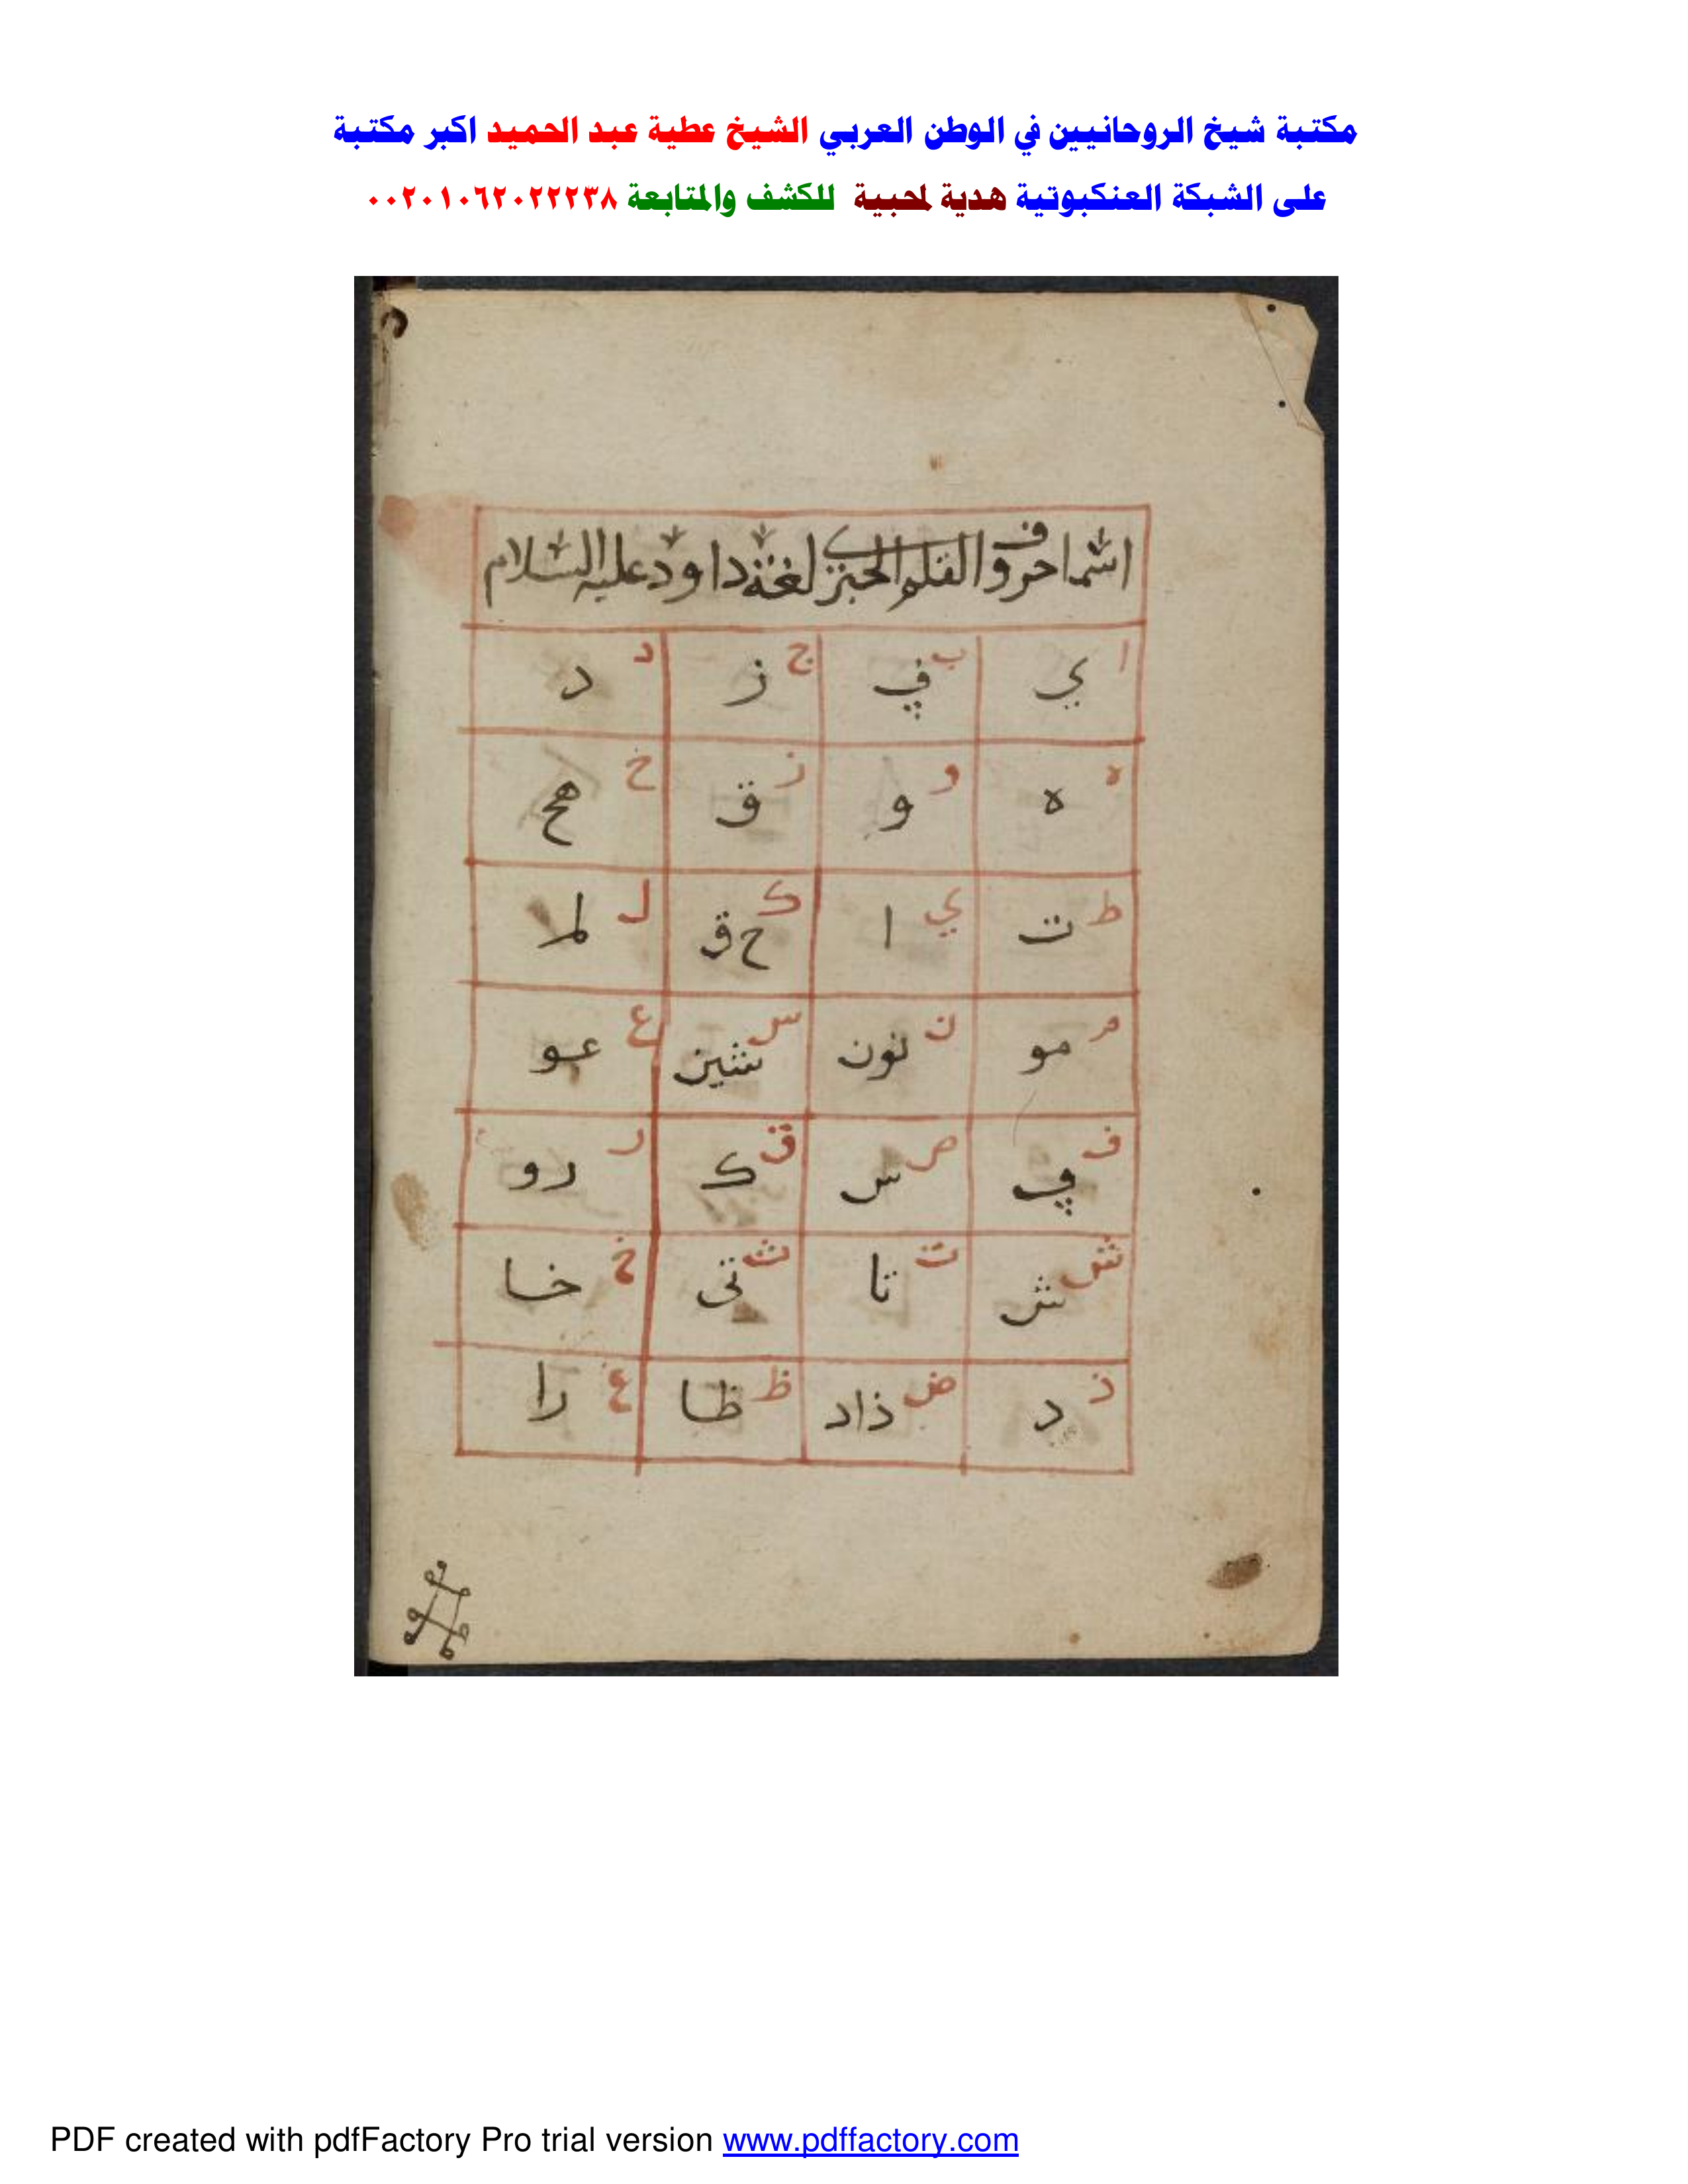 مكتبة شيخ الروحانيين في الوطن العربي الشيخ عطية عبد الحميد اكبر مكتبة
على الشبكة العنكبوتية هدية لمحبية للكشف والمتابعة ٠٠٢٠١٠٦٢٠٢٢٢٣٨
اسما حروف القلم لغة داود عليه السلام
ا ي ب ڢ ج ز د د
ه ه و و ز ق ح هح
ط ت ي ا ك ح ق ل لا
م مو ن نون س شين ع عو
ف ڢ ص س ق ك ر رو
ش ش ت تا ث تى خ خا
ذ د ض ذاد ظ ظا غ را
PDF created with pdfFactory Pro trial version www.pdffactory.com